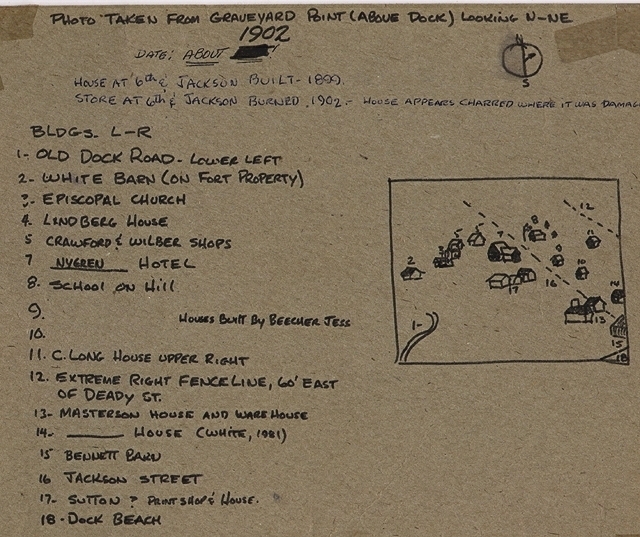 PHOTO TAKEN FROM GRAVEYARD POINT (ABOVE DOCK) LOOKING N-NE
1902
DATE: ABOUT
N
S
HOUSE AT 6th & JACKSON BUILT - 1899.
STORE AT 6th & JACKSON BURNED .1902.- HOUSE APPEARS CHARRED WHERE IT WAS DAMAG
BLDGS. L-R
1- OLD DOCK ROAD - LOWER LEFT
2- WHITE BARN (ON FORT PROPERTY)
3- EPISCOPAL CHURCH
4. LINDBERG HOUSE
5 CRAWFORD & WILBER SHOPS
7 NYGREN HOTEL
8. SCHOOL ON HILL
9.
HOUSES BUILT BY BEECHER JESS
10.
11. C. LONG HOUSE UPPER RIGHT
12. EXTREME RIGHT FENCELINE, 60' EAST
OF DEADY ST.
13- MASTERSON HOUSE AND WAREHOUSE
14- HOUSE (WHITE, 1981)
15 BENNETT BARN
16 JACKSON STREET
17- SUTTON ? PRINT SHOP & HOUSE.
18- DOCK BEACH
12
8
11
7
2
9
10
17
16
13
1-
15
18